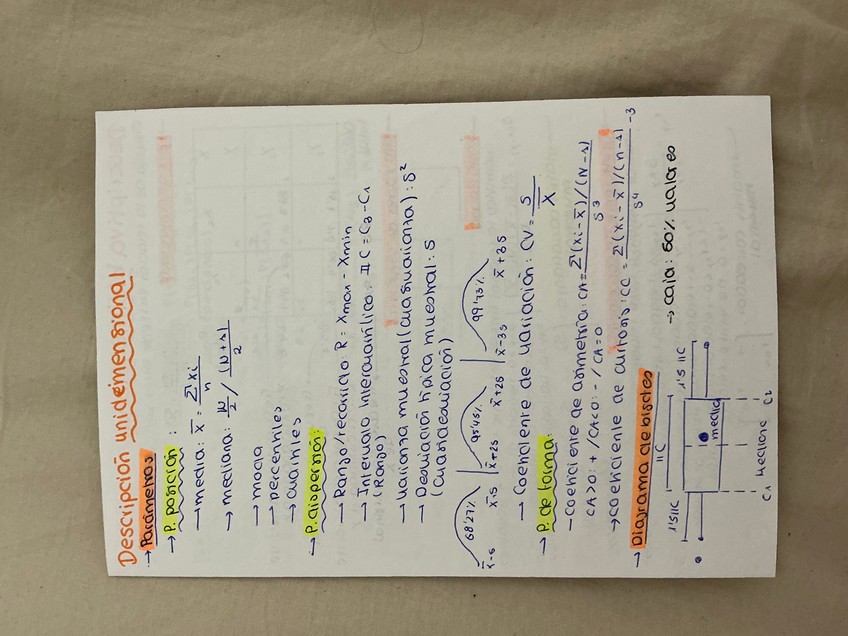 Descripción unidimensional
→ Parámetros
→ P. posición:
→ media: x̄ = Σxi / n
→ mediana: N/2 / (N+1)/2
→ moda
→ percentiles
→ cuartiles
→ P. dispersión:
→ Rango/recorrido R = xmax - xmin
→ Intervalo intercuartílico: IIC = C3 - C1
(Rango)
→ Varianza muestral (cuasivarianza): s²
→ Desviación típica muestral: s
(cuasidesviación)
68'27% 99'73%
x̄-s x̄+2s x̄+2s x̄-3s x̄+3s
→ Coeficiente de variación: CV = s / x̄
→ P. de forma:
- Coeficiente de asimetría: CA = Σ(xi - x̄)/(N-1) / s³
CA>0: + / CA<0: - / CA=0
→ coeficiente de curtosis: CC = Σ(xi - x̄)/(n-1) / s⁴ - 3
→ Diagrama de bigotes → caja: 50% valores
1'5 IIC IIC 1'5 IIC
media
C1 mediana C2